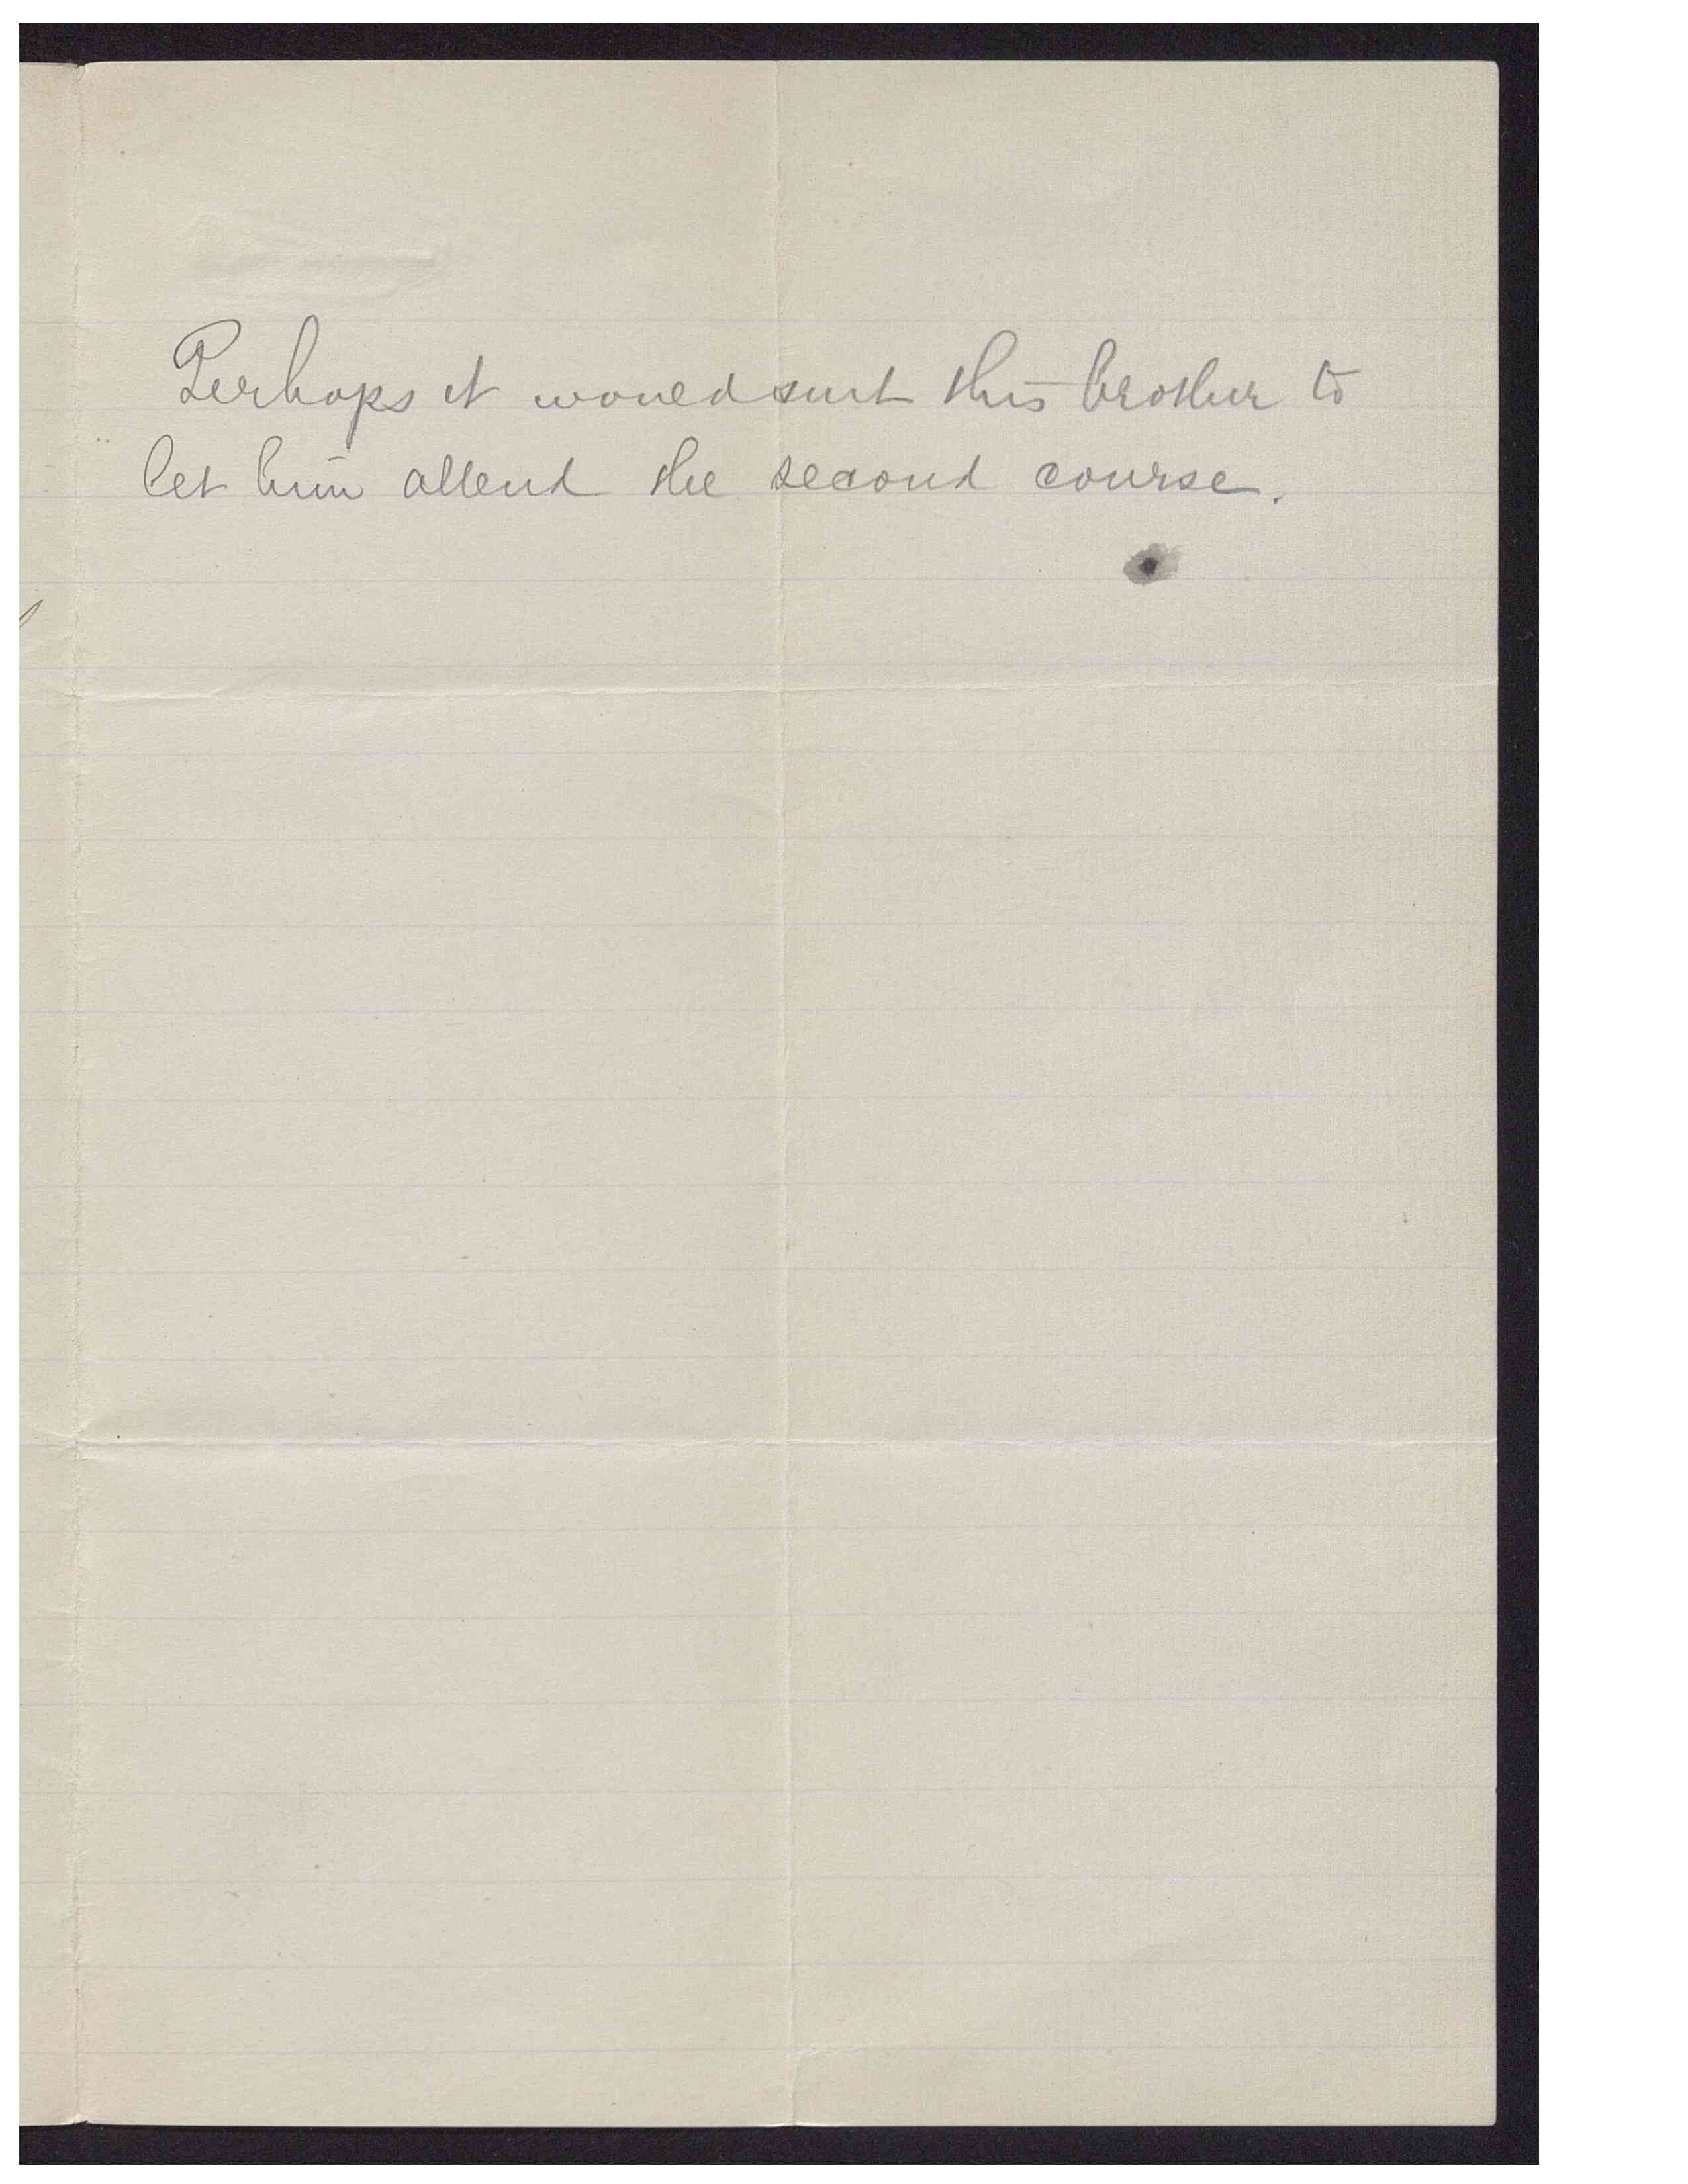 Perhaps it would suit this brother to
let him attend the second course.